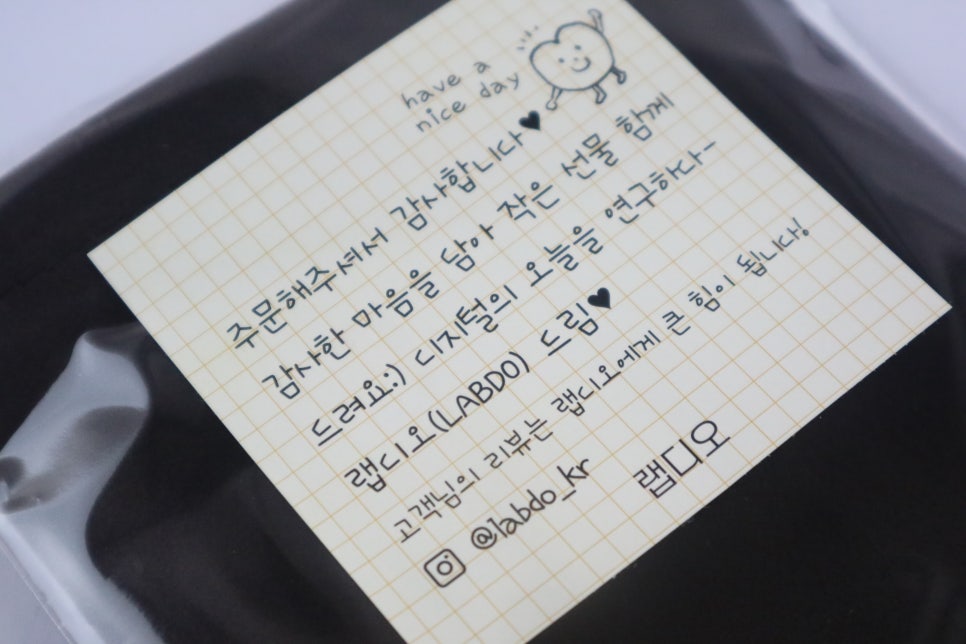 have a
nice day
주문해주셔서 감사합니다♥
감사한 마음을 담아 작은 선물 함께
드려요:) 디지털의 오늘을 연구하다-
랩디오(LABDO) 드림♥
고객님의 리뷰는 랩디오에게 큰 힘이 됩니다!
@labdo_kr
랩디오